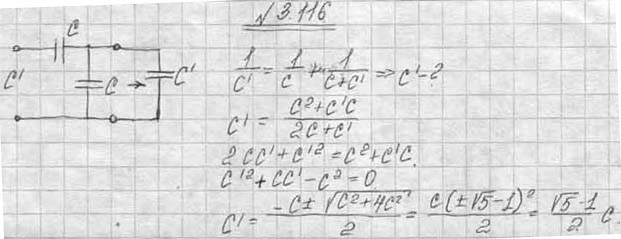 № 3.116
C
C'
C → C'
1/C' = 1/C + 1/(C+C') ⇒ C' - ?
C' = (C²+C'C)/(2C+C')
2CC' + C'² = C² + C'C.
C'² + CC' - C² = 0
C' = (-C ± √(C²+4C²))/2 = C(±√5-1)/2 = (√5-1)/2 C.